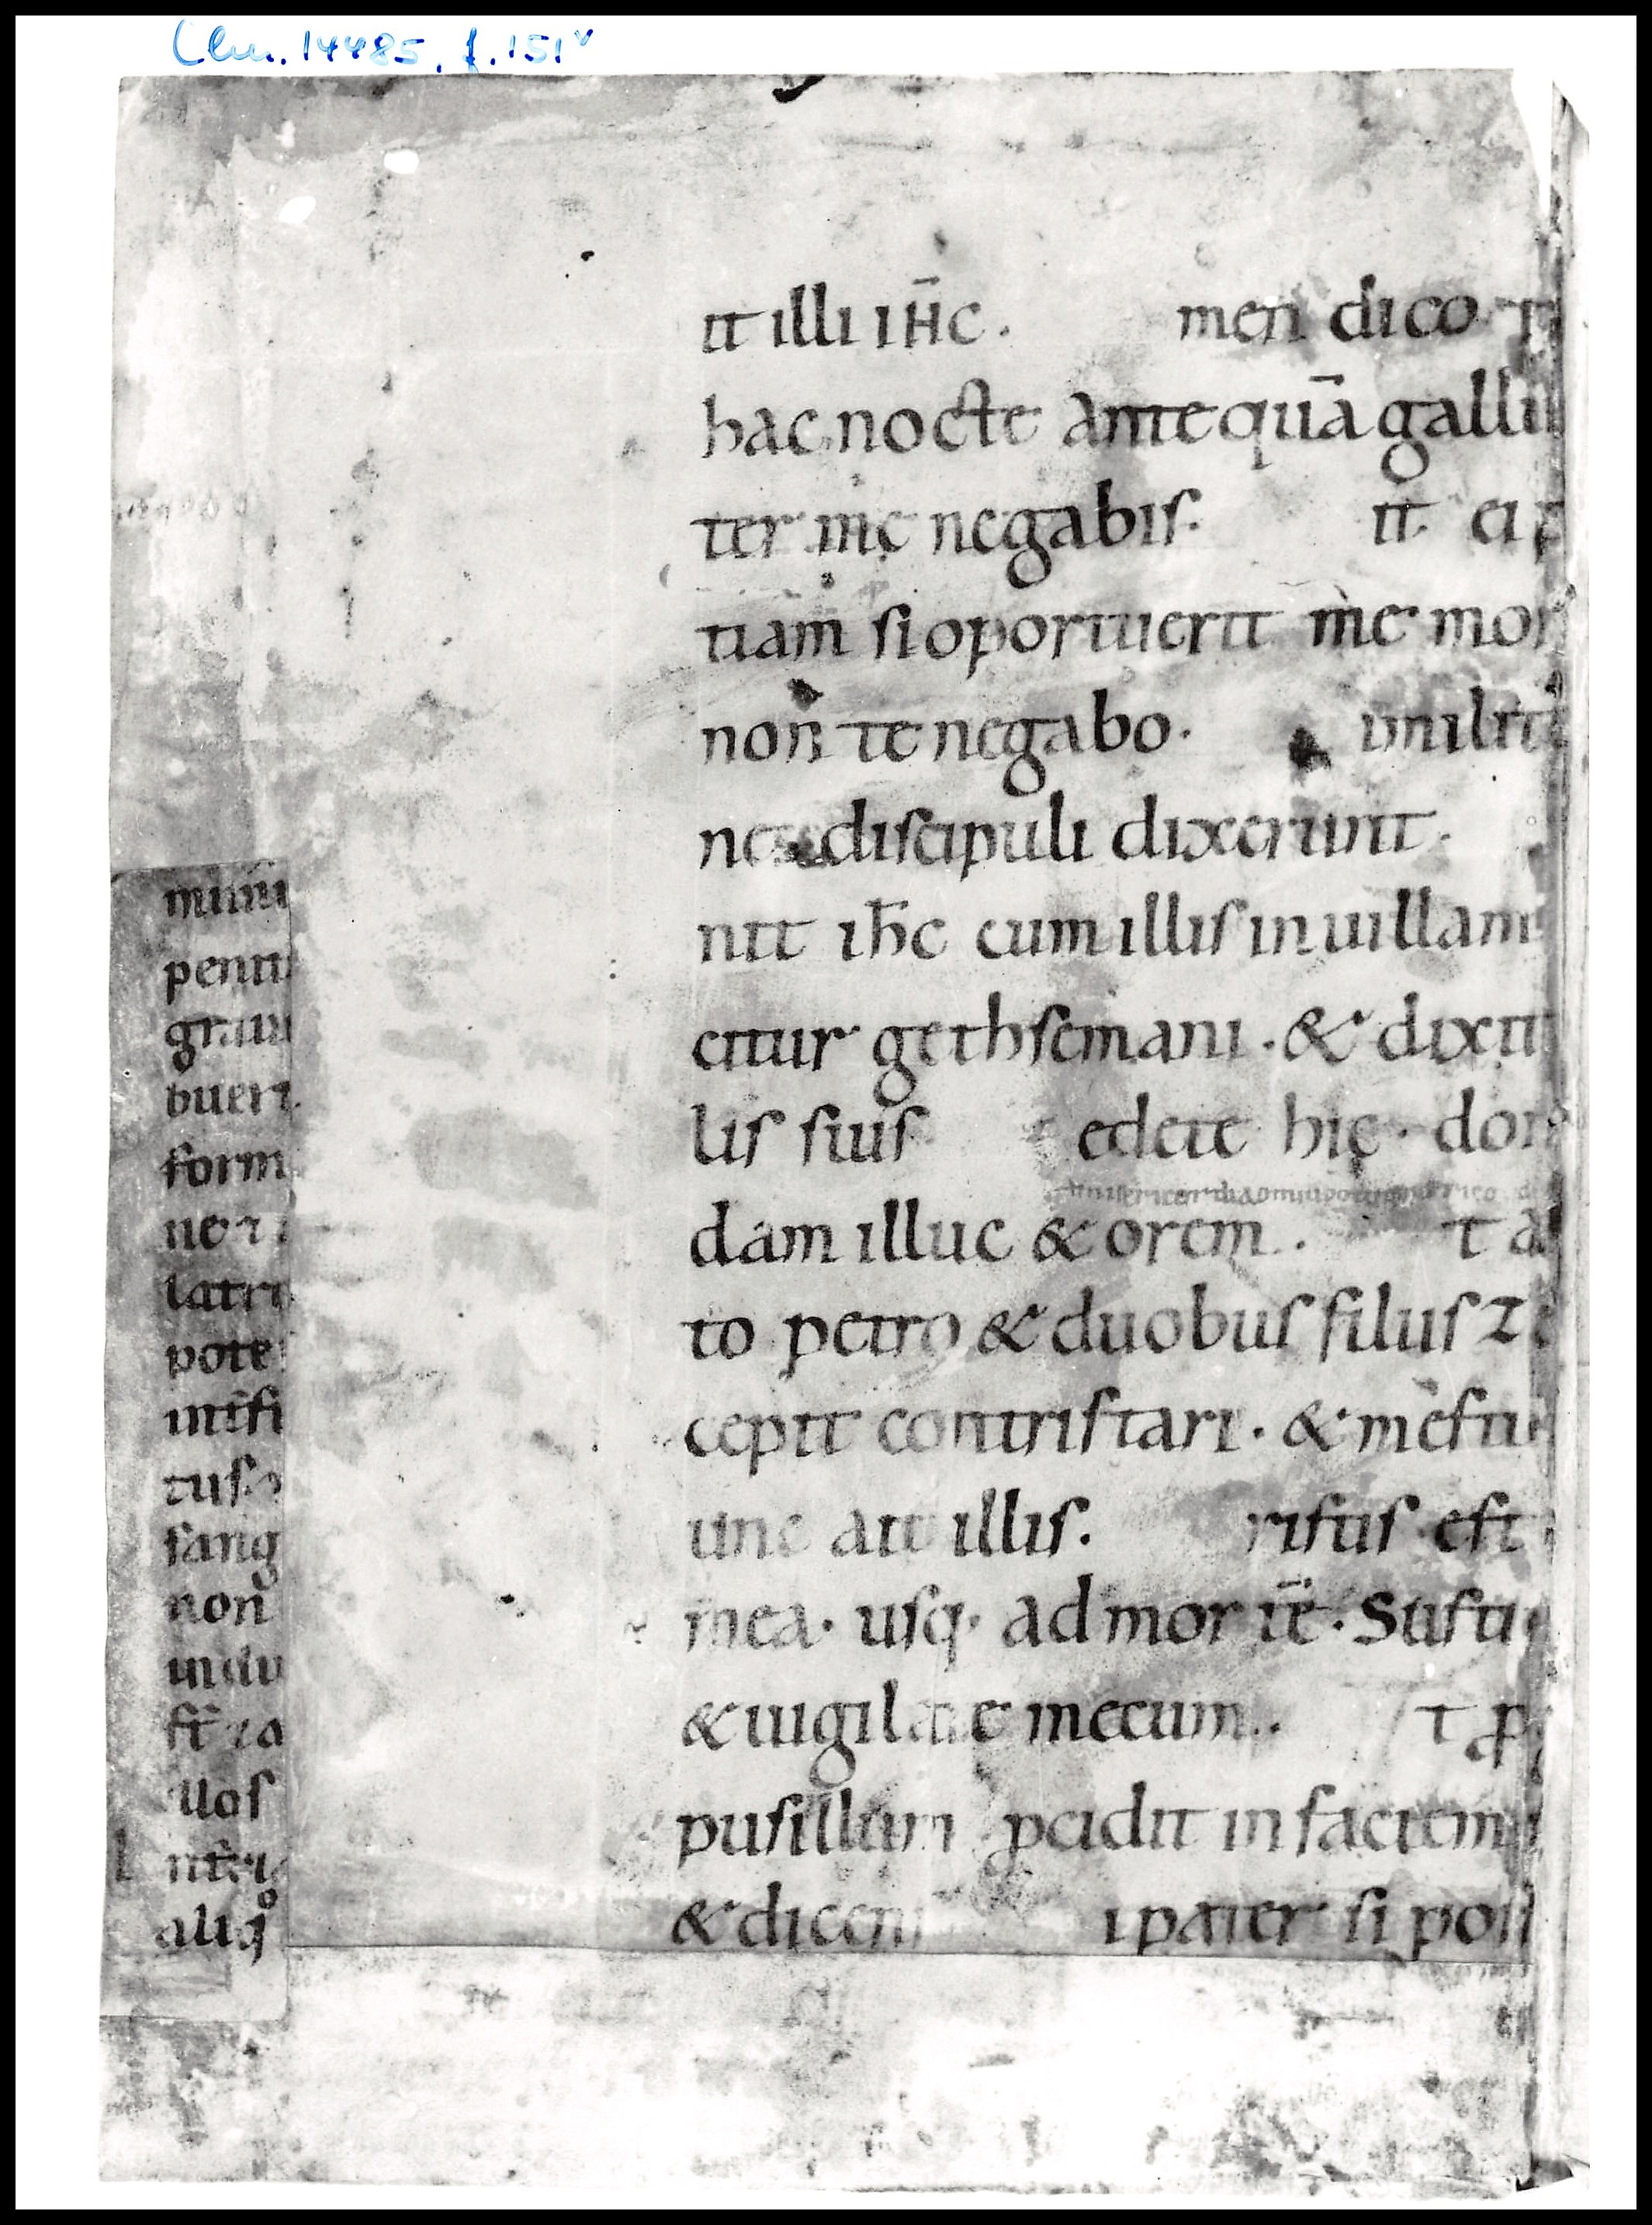 Clm. 14485, f. 151v
it illi ih̄c. men dico
hac nocte antequā galli
ter me negabis. it ei
tiam si oportuerit me mor
non te negabo.
discipuli dixerunt.
nit ih̄c cum illis in uillam
citur gethsemani. & dixit
lis suis edete hic. don
dam illuc & orem.. t a
to petro & duobus filiis ze
cepit contristari. & mesti
unc ait illis. ristis est
mea. usq. ad mortē. Susti
& uigilate mecum.. t p
pusillum pcidit in faciem
& dicens i pater si poss
penit
grau
buert
form
ne
latri
pote
misi
tus
sang
non
indu
llos
aliqo